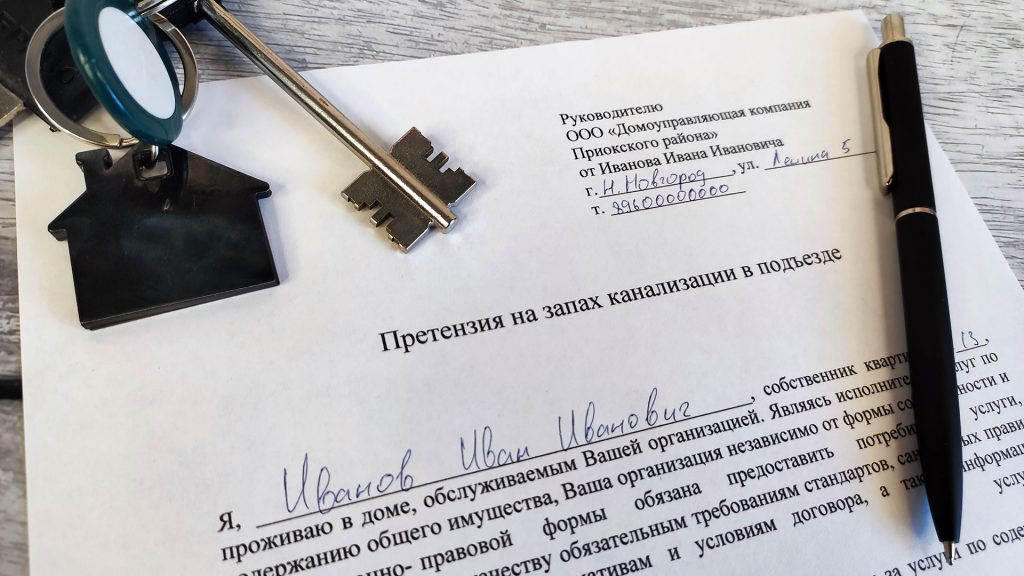 Руководителю
ООО «Домоуправляющая компания
Приокского района»
от Иванова Ивана Ивановича
г. Н.Новгород, ул. Ленина 5
т. 89600000000
Претензия на запах канализации в подъезде
Я, Иванов Иван Иванович, собственник кварти 13,
проживаю в доме, обслуживаемым Вашей организацией. Являясь исполните луг по
одержанию общего имущества, Ваша организация независимо от формы со ности и
нно- правовой формы обязана предоставить потреби услуги,
честву обязательным требованиям стандартов, сан ых прави
ативам и условиям договора, а так информа
услу
за услуги по соде